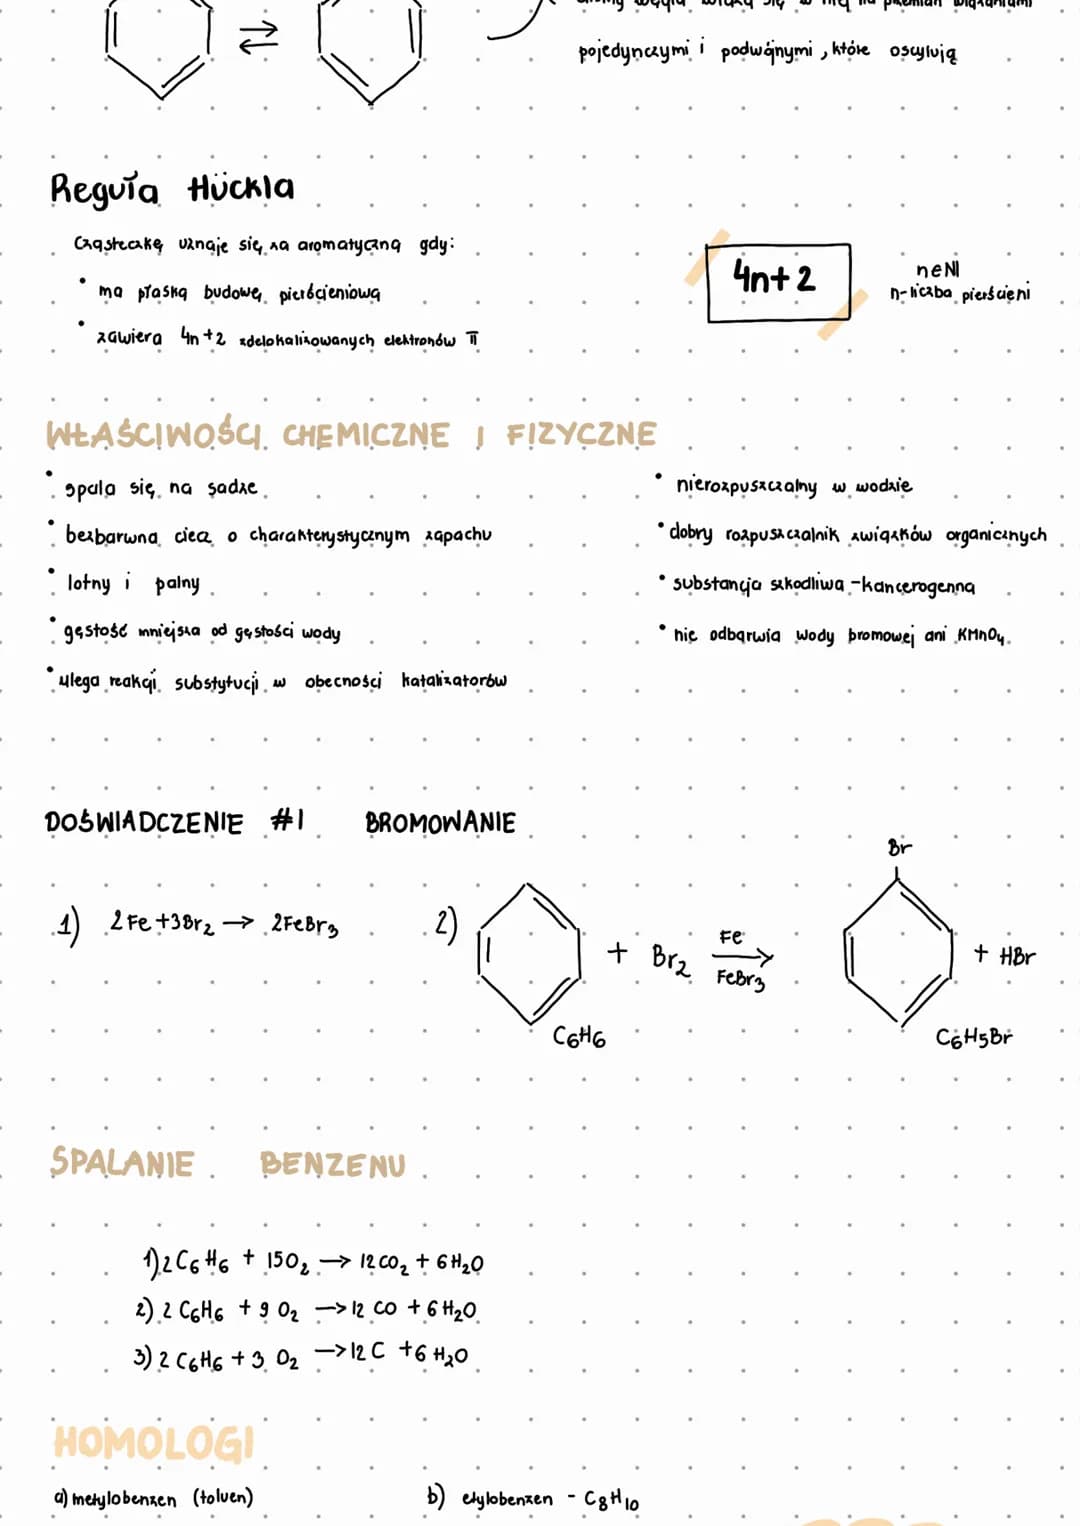 pojedynczymi i podwójnymi, które oscylują
Reguła Hückla
Cząsteczkę uznaje się za aromatyczną gdy:
• ma płaską budowę pierścieniową
• zawiera 4n+2 zdelokalizowanych elektronów π
4n+2
n∈N
n-liczba pierścieni
WŁAŚCIWOŚCI CHEMICZNE I FIZYCZNE
• spala się na sadzę
• bezbarwna ciecz o charakterystycznym zapachu
• lotny i palny
• gęstość mniejsza od gęstości wody
• ulega reakcji substytucji w obecności katalizatorów
• nierozpuszczalny w wodzie
• dobry rozpuszczalnik związków organicznych
• substancja szkodliwa - kancerogenna
• nie odbarwia wody bromowej ani KMnO₄
DOŚWIADCZENIE #1 BROMOWANIE
1) 2Fe+3Br₂ → 2FeBr₃
2)
C₆H₆
+ Br₂
Fe
FeBr₃
Br
+ HBr
C₆H₅Br
SPALANIE BENZENU
1) 2C₆H₆ + 15O₂ → 12CO₂ + 6H₂O
2) 2C₆H₆ + 9O₂ → 12CO + 6H₂O
3) 2C₆H₆ + 3O₂ → 12C + 6H₂O
HOMOLOGI
a) metylobenzen (toluen)
b) etylobenzen - C₈H₁₀